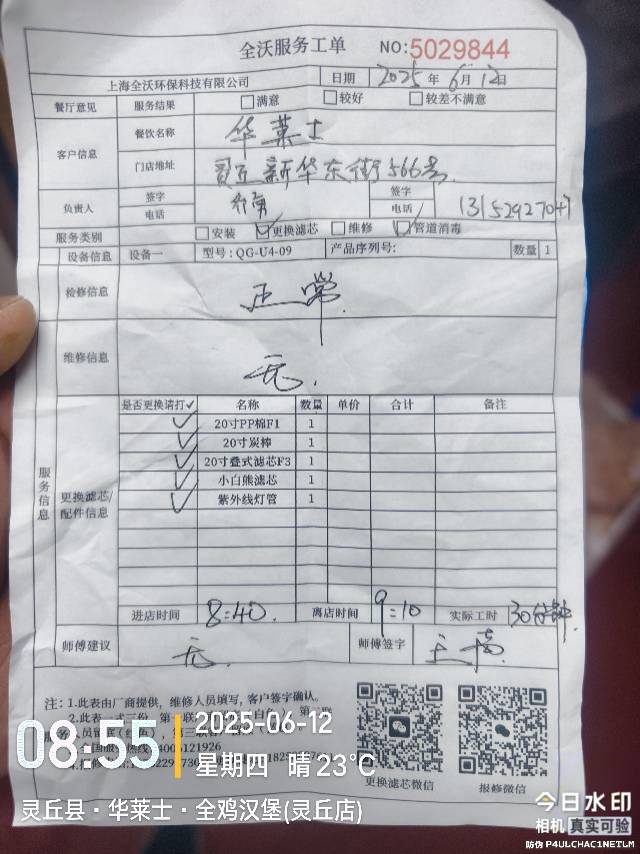 全沃服务工单 NO:5029844
上海全沃环保科技有限公司 日期 2025年6月12日
餐厅意见 服务结果 □满意 □较好 □较差不满意
客户信息 餐饮名称 华莱士
门店地址 灵丘新华东街566号
负责人 签字 签字
电话 电话
服务类别 □安装 ☑更换滤芯 □维修 ☑管道消毒
设备信息 设备一 型号:QG-U4-09 产品序列号: 数量 1
检修信息 正常.
维修信息 无.
服务信息
更换滤芯/配件信息
是否更换请打✓ 名称 数量 单价 合计 备注
✓ 20寸PP棉F1 1
✓ 20寸炭棒 1
✓ 20寸叠式滤芯F3 1
✓ 小白熊滤芯 1
✓ 紫外线灯管 1
进店时间 8:40. 离店时间 9:10 实际工时 30分钟.
师傅建议 无. 师傅签字
注:1.此表由厂商提供，维修人员填写，客户签字确认。
更换滤芯微信 报修微信
08:55 2025-06-12
星期四 晴 23℃
灵丘县·华莱士·全鸡汉堡(灵丘店)
今日水印
相机 真实可验
防伪 P4ULCHAC1NETLM